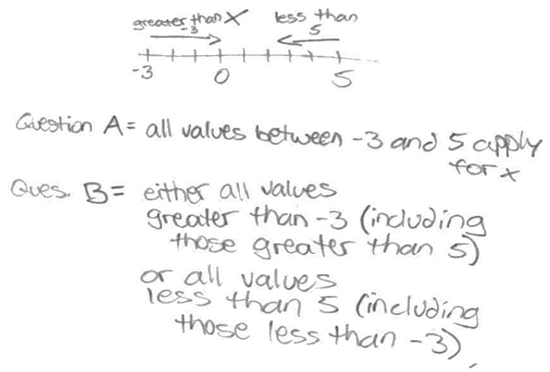 greater than X less than
-3 5
-3 0 5
Question A = all values between -3 and 5 apply
for x
Ques. B = either all values
greater than -3 (including
those greater than 5)
or all values
less than 5 (including
those less than -3).